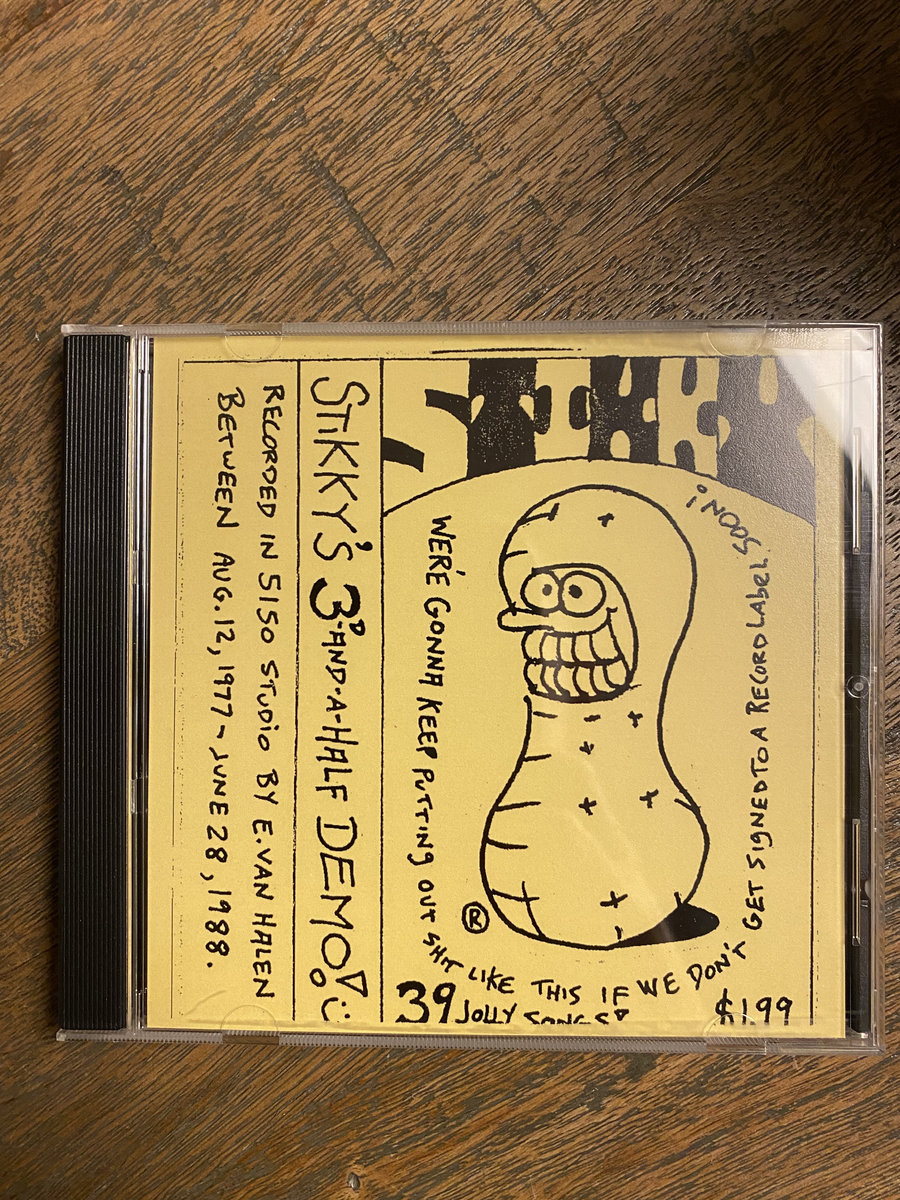 WERE' GONNA KEEP PUTTING OUT SHIT LIKE THIS IF WE DON'T GET SIGNED TO A RECORD LABEL SOON!
®
39 JOLLY SONGS
$1.99
STIKKY'S 3RD-AND-A-HALF DEMO!
RECORDED IN 5150 STUDIO BY E. VAN HALEN
BETWEEN AUG. 12, 1977 - JUNE 28, 1988.